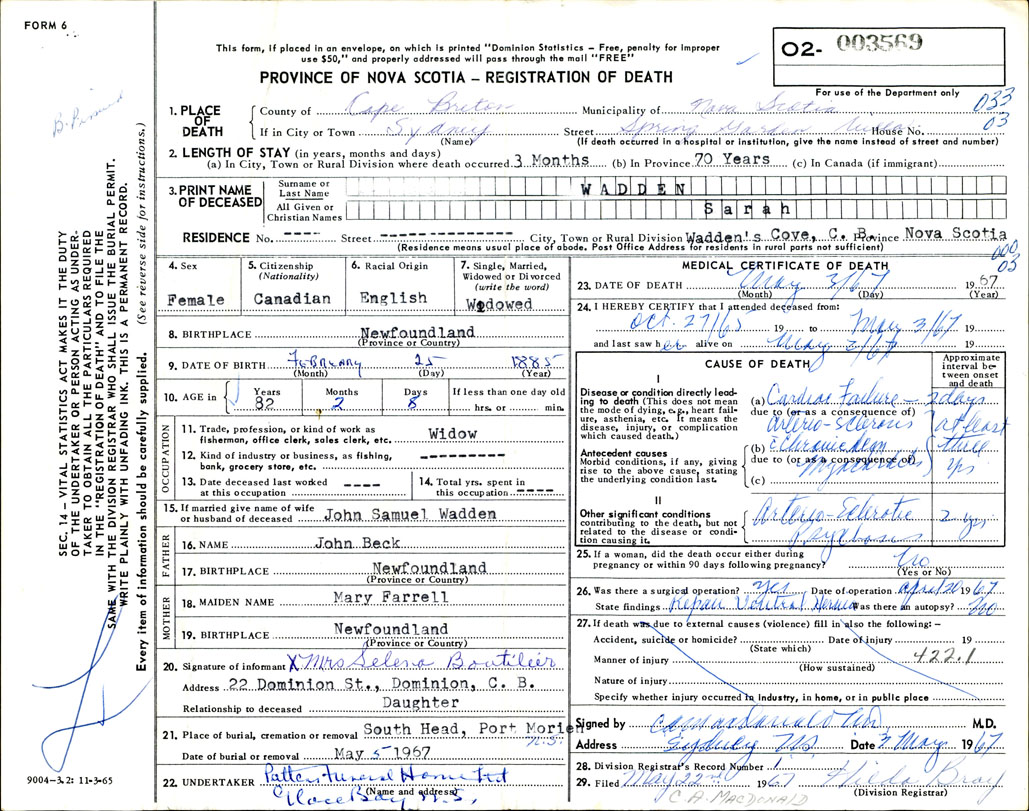 FORM 6
This form, if placed in an envelope, on which is printed "Dominion Statistics – Free, penalty for improper
use $50," and properly addressed will pass through the mail "FREE"
PROVINCE OF NOVA SCOTIA – REGISTRATION OF DEATH
02- 003569
For use of the Department only
033
03
1. PLACE OF DEATH
County of Cape Breton Municipality of Nova Scotia
If in City or Town Sydney Street Spring Garden House No.
(Name) (If death occurred in a hospital or institution, give the name instead of street and number)
2. LENGTH OF STAY (in years, months and days)
(a) In City, Town or Rural Division where death occurred 3 Months (b) In Province 70 Years (c) In Canada (if immigrant)
3. PRINT NAME OF DECEASED
Surname or Last Name WADDEN
All Given or Christian Names Sarah
RESIDENCE No. ---- Street -------------- City, Town or Rural Division Wadden's Cove, C. B. Province Nova Scotia
(Residence means usual place of abode. Post Office Address for residents in rural parts not sufficient)
000
03
4. Sex
Female
5. Citizenship
(Nationality)
Canadian
6. Racial Origin
English
7. Single, Married,
Widowed or Divorced
(write the word)
Widowed
8. BIRTHPLACE Newfoundland
(Province or Country)
9. DATE OF BIRTH February 25 1885
(Month) (Day) (Year)
10. AGE in
Years 82
Months 2
Days 8
If less than one day old
hrs. or min.
OCCUPATION
11. Trade, profession, or kind of work as
fisherman, office clerk, sales clerk, etc. Widow
12. Kind of industry or business, as fishing,
bank, grocery store, etc. ----------
13. Date deceased last worked
at this occupation ----
14. Total yrs. spent in
this occupation -----
15. If married give name of wife
or husband of deceased John Samuel Wadden
FATHER
16. NAME John Beck
17. BIRTHPLACE Newfoundland
(Province or Country)
MOTHER
18. MAIDEN NAME Mary Farrell
19. BIRTHPLACE Newfoundland
(Province or Country)
20. Signature of informant X Mrs Selena Boutilier
Address 22 Dominion St., Dominion, C. B.
Relationship to deceased Daughter
21. Place of burial, cremation or removal South Head, Port Morien
N.S.
Date of burial or removal May 5 1967
22. UNDERTAKER Patten Funeral Home Ltd
(Name and address)
Glace Bay N.S.
MEDICAL CERTIFICATE OF DEATH
23. DATE OF DEATH May 3/67 1967
(Month) (Day) (Year)
24. I HEREBY CERTIFY that I attended deceased from:
Oct. 27/65 19 to May 3/67 19
and last saw her alive on May 3/67 19
CAUSE OF DEATH
Approximate
interval be-
tween onset
and death
I
Disease or condition directly lead-
ing to death (This does not mean
the mode of dying, e.g., heart fail-
ure, asthenia, etc. It means the
disease, injury, or complication
which caused death.)
(a) Cardiac Failure – 2 days
due to (or as a consequence of)
Arterio-Sclerosis at least
Antecedent causes
Morbid conditions, if any, giving
rise to the above cause, stating
the underlying condition last.
(b) three
due to (or as a consequence of)
yrs
(c)
II
Other significant conditions
contributing to the death, but not
related to the disease or condi-
tion causing it.
Arterio-Sclerotic 2 yrs
Psychosis
25. If a woman, did the death occur either during
pregnancy or within 90 days following pregnancy? No
(Yes or No)
26. Was there a surgical operation? Yes Date of operation April 20 1967
State findings Repair Ventral Hernia Was there an autopsy? No
27. If death was due to external causes (violence) fill in also the following: –
Accident, suicide or homicide? Date of injury 19
(State which)
422.1
Manner of injury
(How sustained)
Nature of injury
Specify whether injury occurred in industry, in home, or in public place
Signed by M.D.
Address Sydney NS Date 3 May 1967
28. Division Registrar's Record Number 1
29. Filed May 22nd 1967 Hilda Bray
(Division Registrar)
C. A. MacDonald
SEC. 14 – VITAL STATISTICS ACT MAKES IT THE DUTY
OF THE UNDERTAKER OR PERSON ACTING AS UNDER-
TAKER TO OBTAIN ALL THE PARTICULARS REQUIRED
IN THE "REGISTRATION OF DEATH" AND TO FILE THE
SAME WITH THE DIVISION REGISTRAR WHO SHALL ISSUE THE BURIAL PERMIT.
WRITE PLAINLY WITH UNFADING INK. THIS IS A PERMANENT RECORD.
Every item of information should be carefully supplied. (See reverse side for instructions.)
9004-3.2: 11-3-65